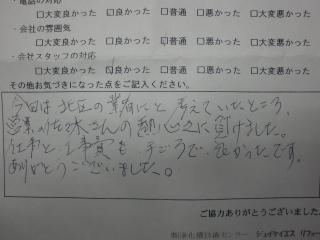 ・電話の対応
□大変良かった □良かった □普通 □悪かった □大変悪かった
・会社の雰囲気
□大変良かった □良かった □普通 □悪かった □大変悪かった
・会社スタッフの対応
□大変良かった □良かった □普通 □悪かった □大変悪かった
その他お気づきになった点をご記入ください。
今回は北区の業者にと考えていたところ、
営業の佐々木さんの熱心さに負けました。
仕事と工事費も手ごろで、良かったです。
ありがとうございました。
ご協力ありがとうございました。
ジェイケイエス リフォー